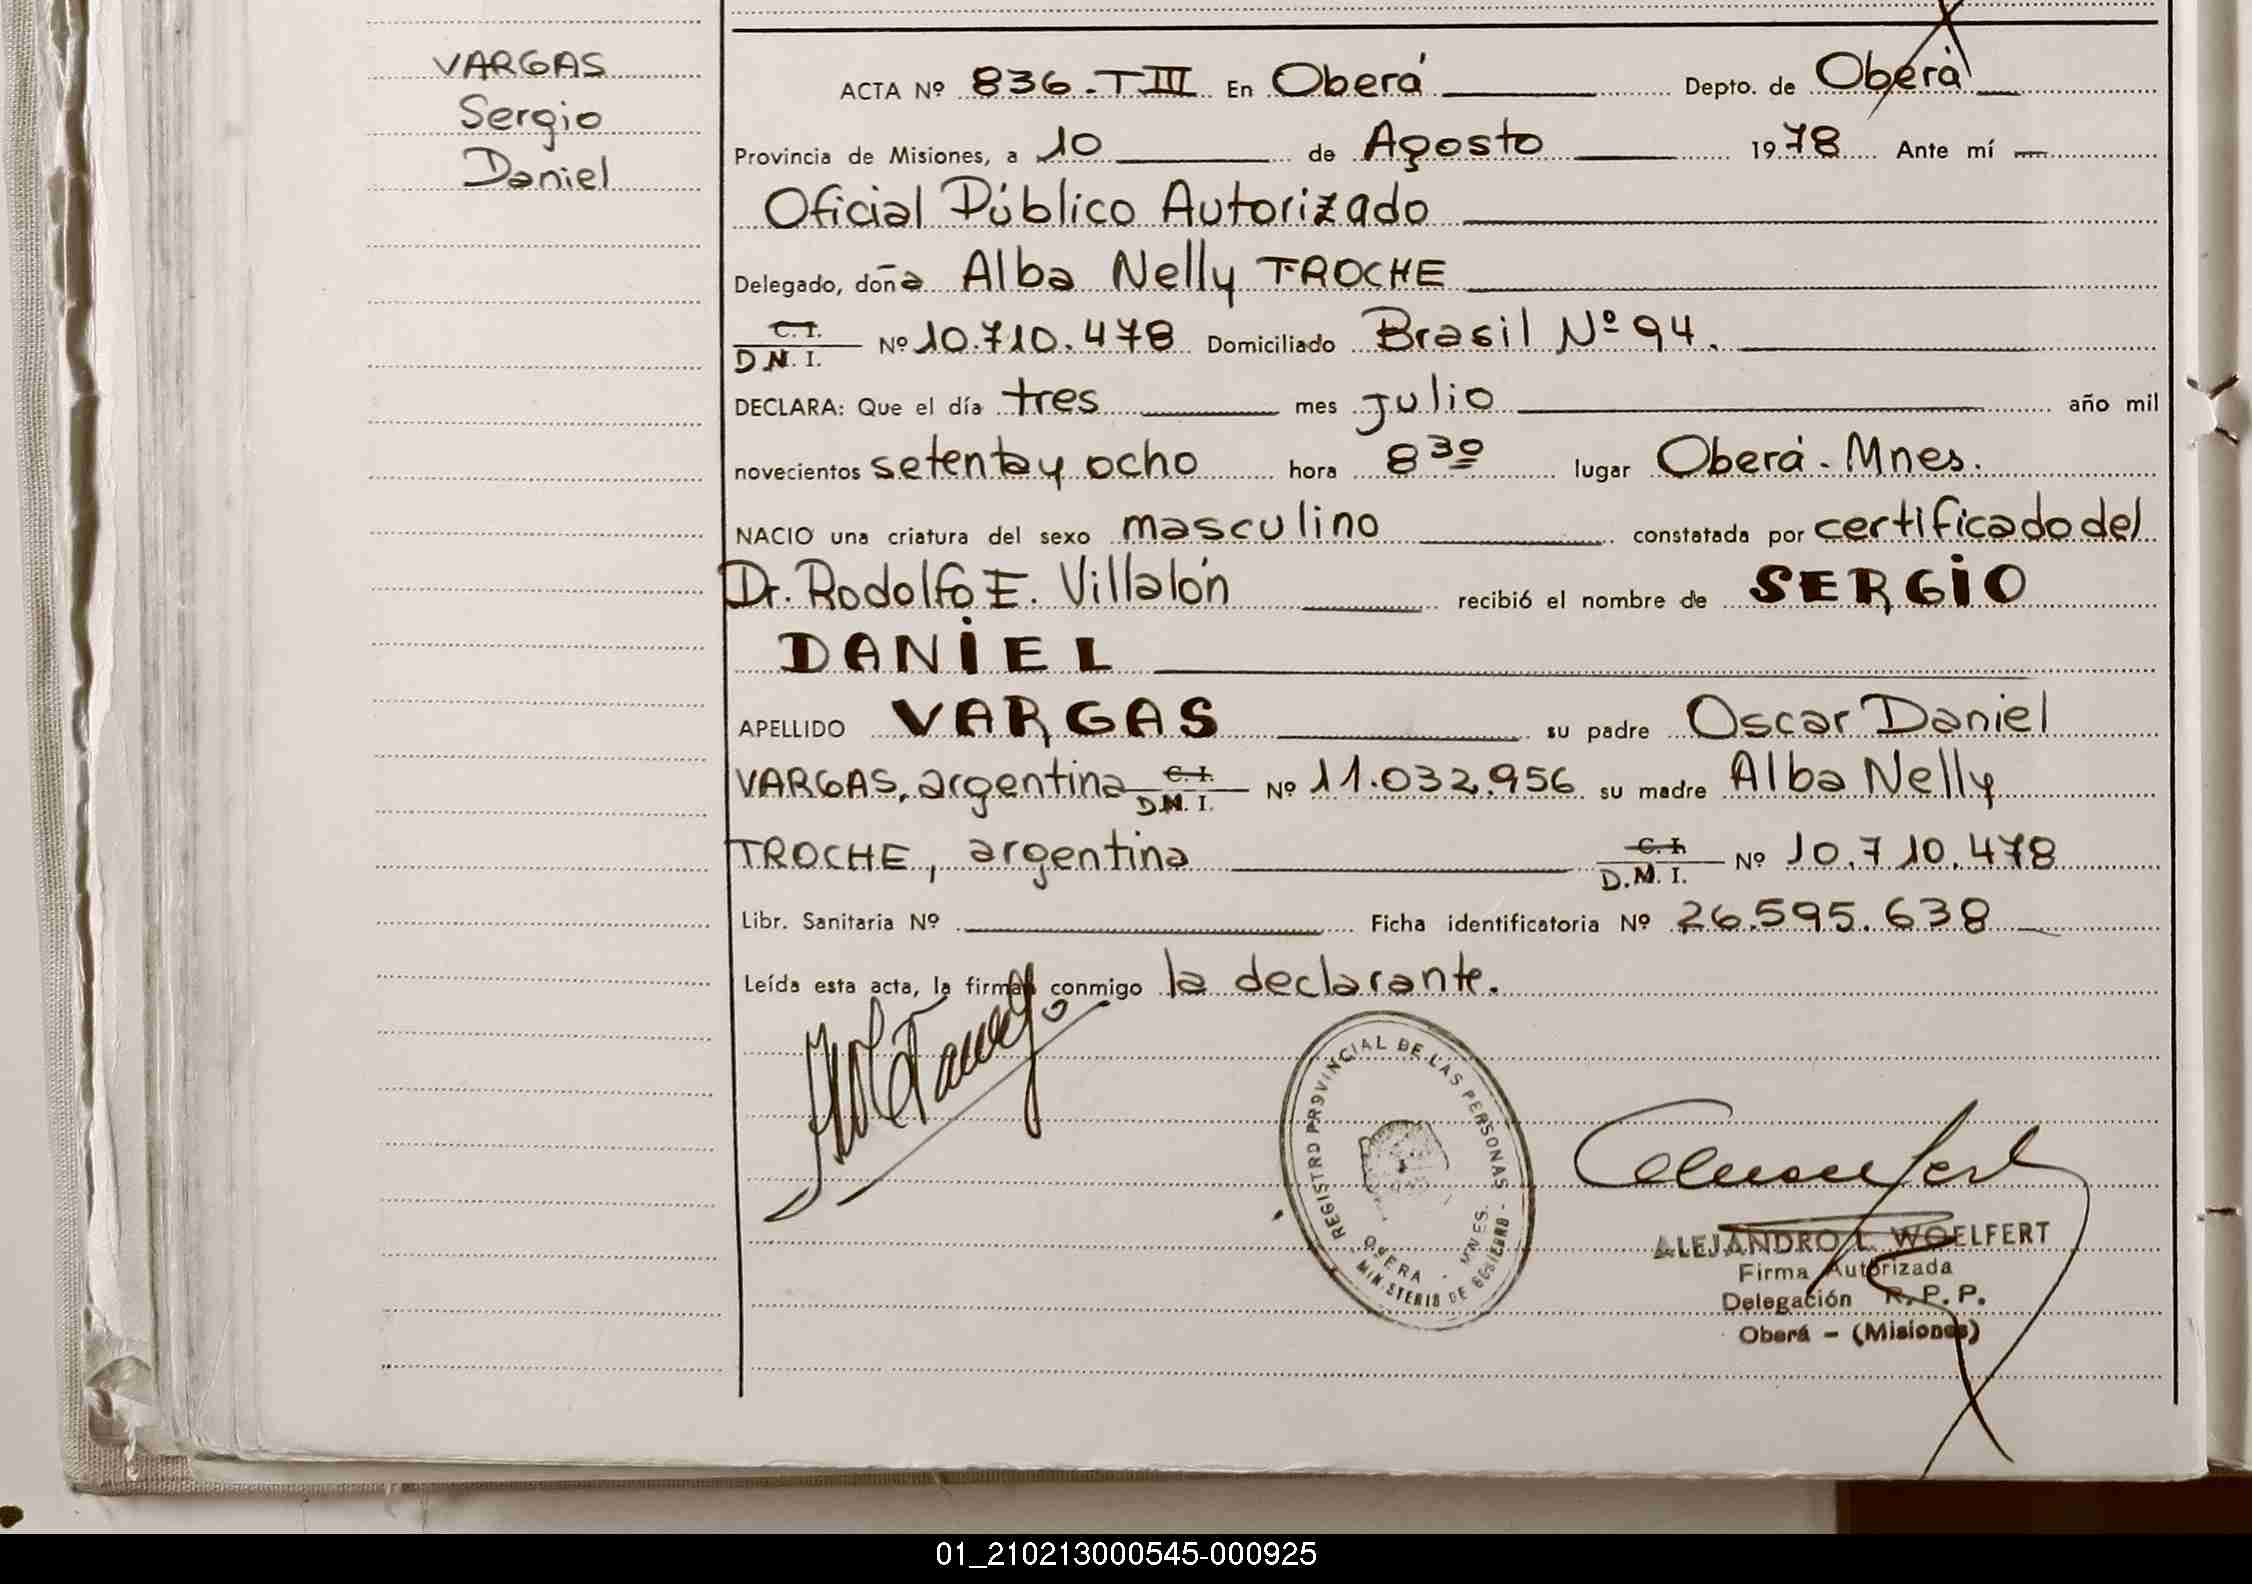 VARGAS
Sergio
Daniel
ACTA Nº 836-TIII En Oberá Depto. de Oberá
Provincia de Misiones, a 10 de Agosto 1978 Ante mí
Oficial Público Autorizado
Delegado, doña Alba Nelly TROCHE
C.I.
D.N.I. Nº 10.710.478 Domiciliado Brasil Nº 94.
DECLARA: Que el día tres mes julio año mil
novecientos setenta y ocho hora 8 30 lugar Oberá - Mnes.
NACIO una criatura del sexo masculino constatada por certificado del
Dr. Rodolfo E. Villalón recibió el nombre de SERGIO
DANIEL
APELLIDO VARGAS su padre Oscar Daniel
VARGAS, argentina C.I. D.M.I. Nº 11.032.956 su madre Alba Nelly
TROCHE, argentina C.I. D.M.I. Nº 10.710.478
Libr. Sanitaria Nº Ficha identificatoria Nº 26.595.638
Leída esta acta, la firma conmigo la declarante.
REGISTRO PROVINCIAL DE LAS PERSONAS
OBERA - MNES.
MINISTERIO DE GOBIERNO
ALEJANDRO L. WOELFERT
Firma Autorizada
Delegación R.P.P.
Oberá - (Misiones)
01_210213000545-000925